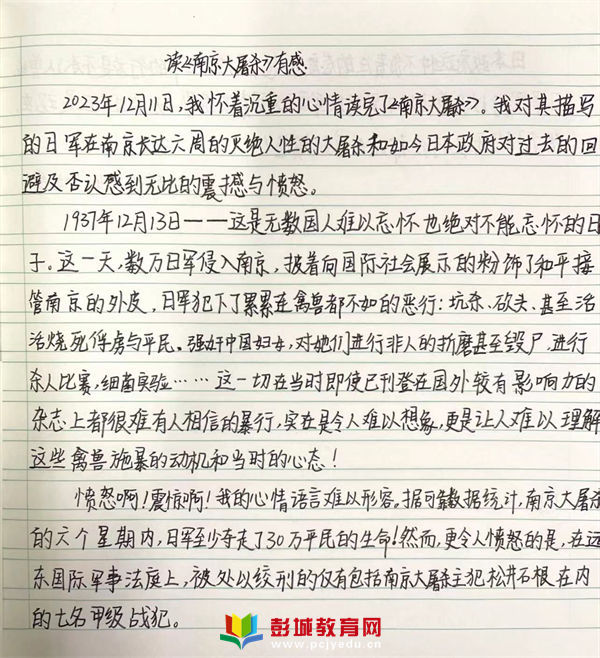 读《南京大屠杀》有感
2023年12月11日,我怀着沉重的心情读完了《南京大屠杀》。我对其描写
的日军在南京长达六周的灭绝人性的大屠杀和如今日本政府对过去的回
避及否认感到无比的震撼与愤怒。
1937年12月13日——这是无数国人难以忘怀也绝对不能忘怀的日
子。这一天,数万日军侵入南京,披着向国际社会展示的粉饰了和平接
管南京的外皮,日军犯下了累累连禽兽都不如的恶行:坑杀、砍头、甚至活
活烧死俘虏与平民。强奸中国妇女,对她们进行非人的折磨甚至毁尸、进行
杀人比赛,细菌实验……这一切在当时即使已刊登在国外较有影响力的
杂志上都很难有人相信的暴行,实在是令人难以想象,更是让人难以理解
这些禽兽施暴的动机和当时的心态!
愤怒啊!震惊啊!我的心情语言难以形容。据可靠数据统计,南京大屠杀
的六个星期内,日军至少夺走了30万平民的生命!然而,更令人愤怒的是,在远
东国际军事法庭上,被处以绞刑的仅有包括南京大屠杀主犯松井石根在内
的七名甲级战犯。
彭城教育网
www.pcjyedu.cn